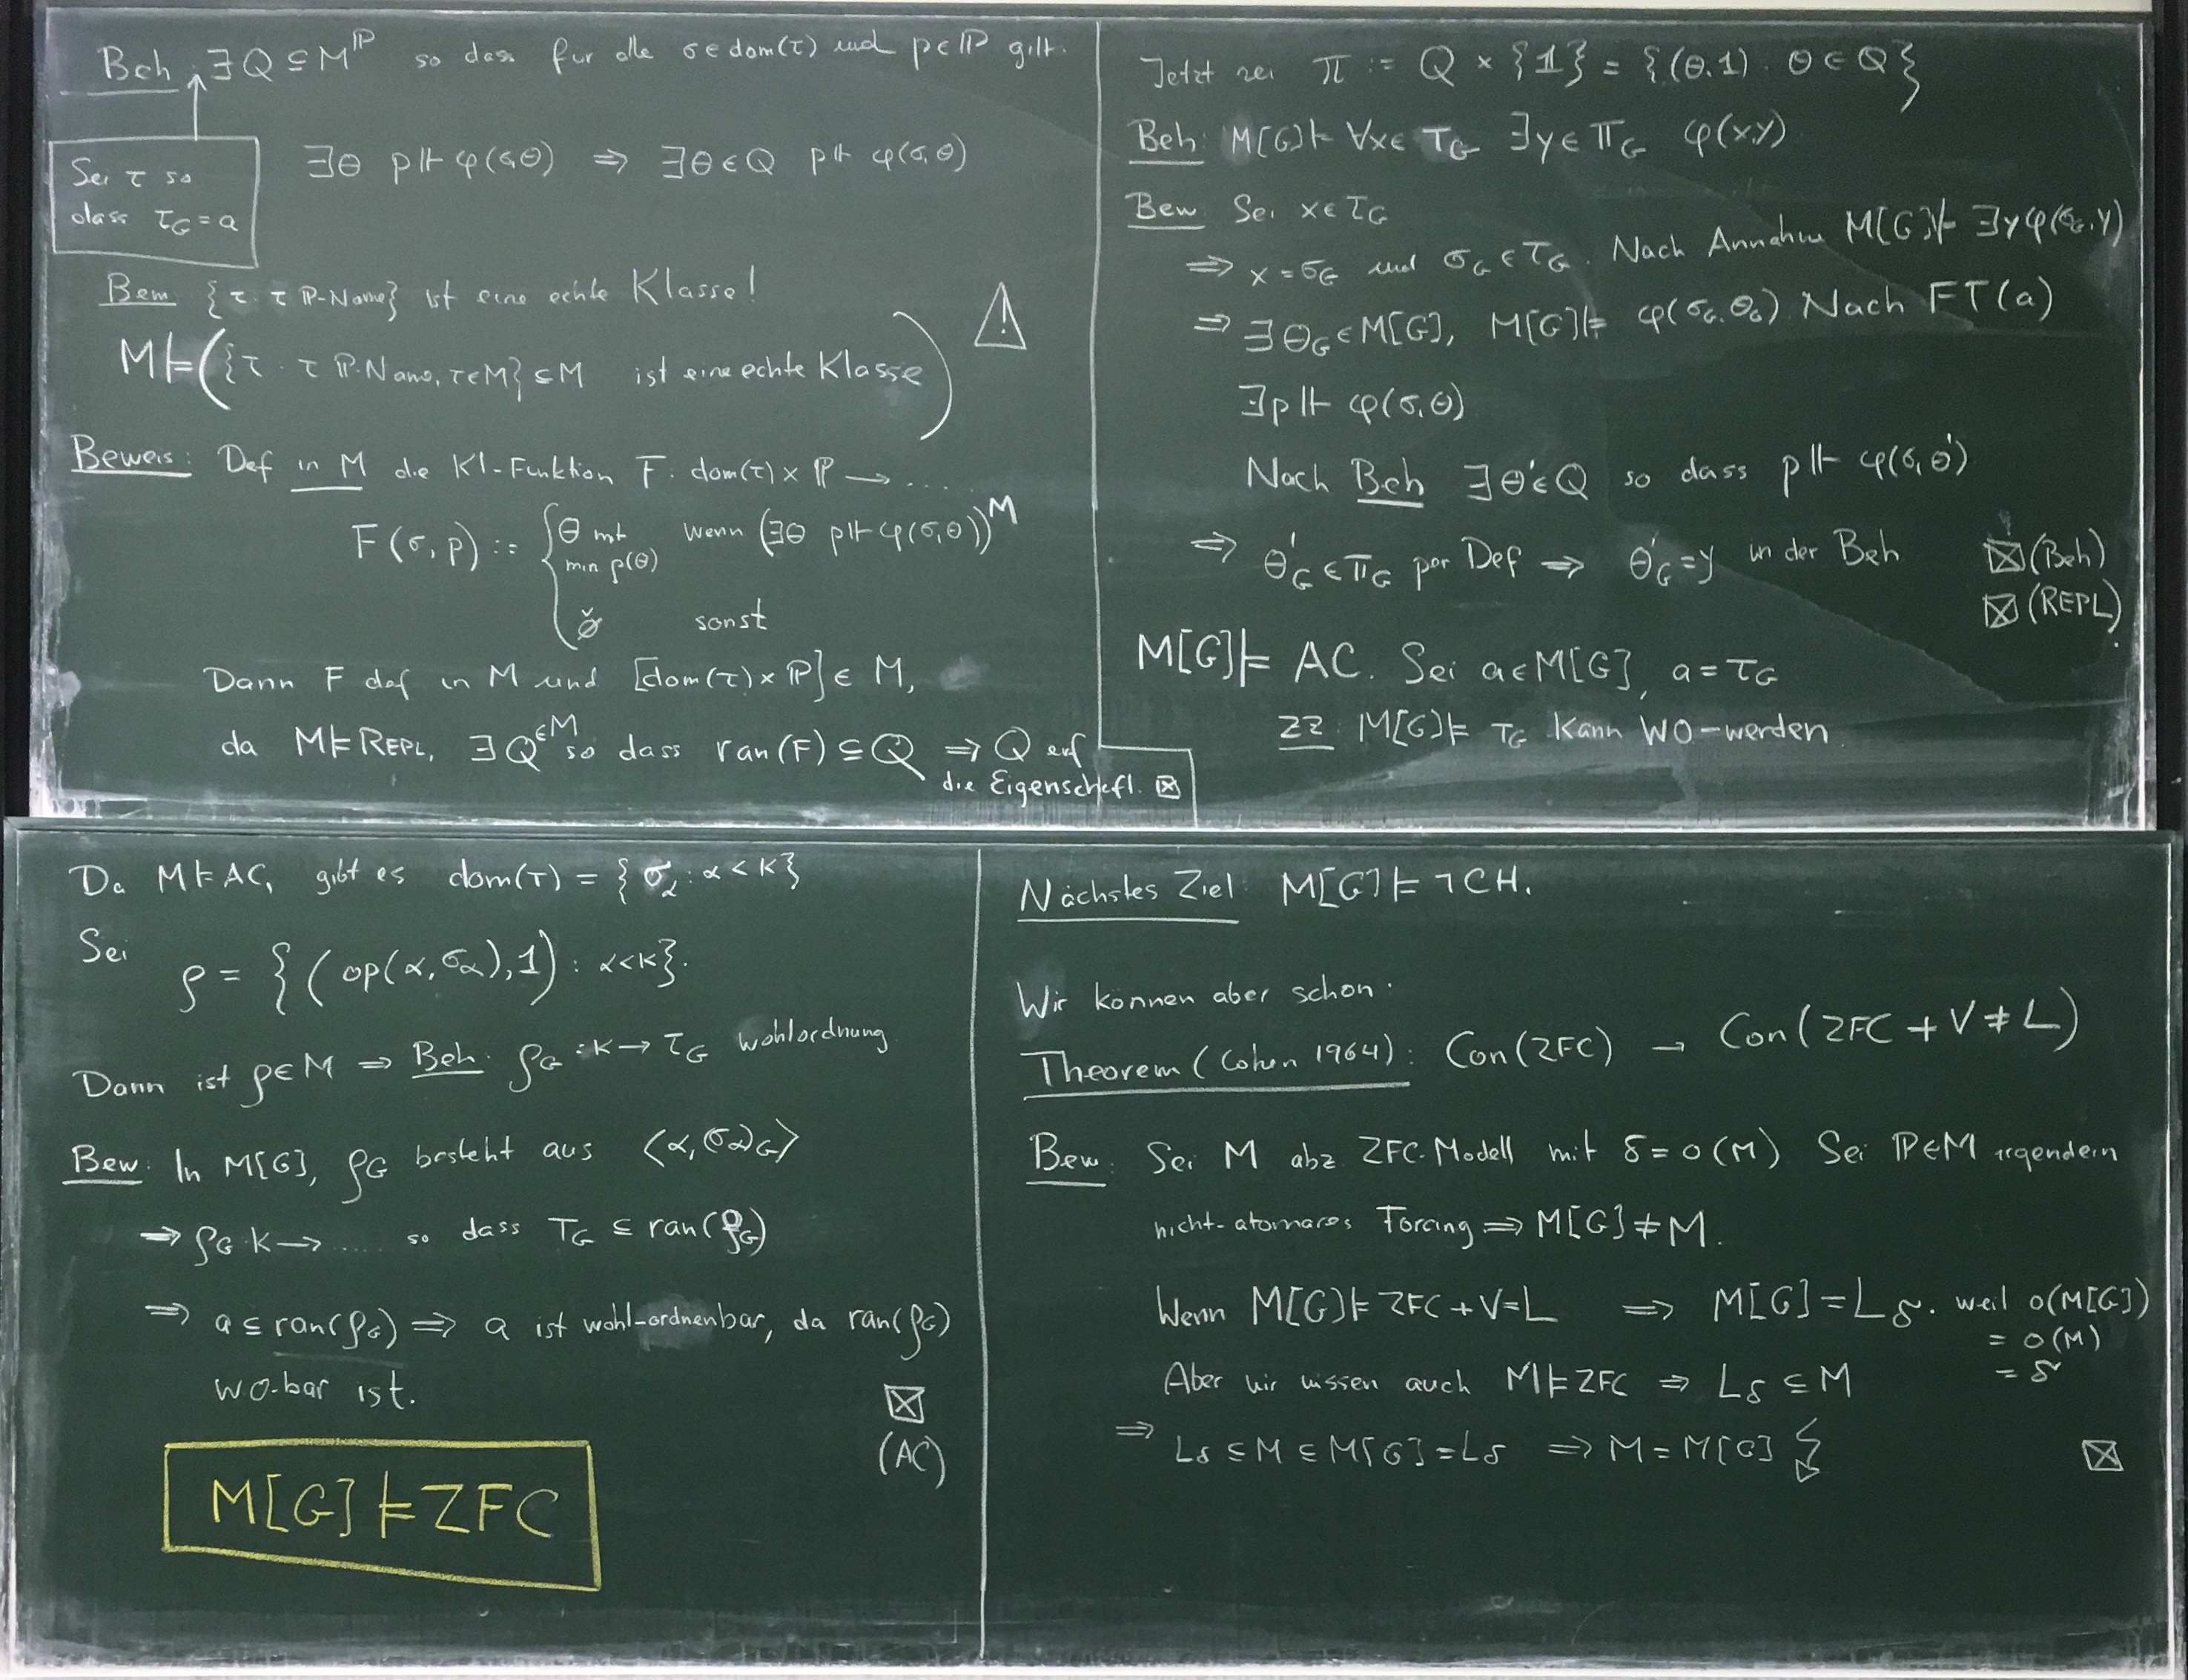 Beh ∃ Q ⊆ M^ℙ so dass für alle σ ∈ dom(τ) und p ∈ ℙ gilt.
Sei τ so
dass τ_G = a
∃θ p ⊩ φ(σ,θ) ⇒ ∃θ ∈ Q p ⊩ φ(σ,θ)
Bem {τ : τ ℙ-Name} ist eine echte Klasse!
M ⊨ ({τ : τ ℙ-Name, τ ∈ M} ⊆ M ist eine echte Klasse)
!
Beweis: Def in M die Kl-Funktion F: dom(τ) × ℙ → ....
F(σ,p) := { θ mit min ρ(θ) wenn (∃θ p ⊩ φ(σ,θ))^M
∅̌ sonst
Dann F def in M und [dom(τ) × ℙ] ∈ M,
da M ⊨ REPL, ∃ Q^{∈M} so dass ran(F) ⊆ Q ⇒ Q erf
die Eigenschaft. ⊠
Jetzt sei π := Q × {1} = {(θ,1) : θ ∈ Q}
Beh: M[G] ⊨ ∀x ∈ τ_G ∃y ∈ π_G φ(x,y)
Bew Sei x ∈ τ_G
⇒ x = σ_G und σ_G ∈ τ_G. Nach Annahm M[G] ⊨ ∃y φ(σ_G,y)
⇒ ∃θ_G ∈ M[G], M[G] ⊨ φ(σ_G,θ_G) Nach FT(a)
∃p ⊩ φ(σ,θ)
Nach Beh ∃θ' ∈ Q so dass p ⊩ φ(σ,θ')
⇒ θ'_G ∈ π_G per Def ⇒ θ'_G = y in der Beh ⊠ (Beh)
⊠ (REPL)
M[G] ⊨ AC. Sei a ∈ M[G], a = τ_G
ZZ: M[G] ⊨ τ_G kann WO-werden.
Da M ⊨ AC, gibt es dom(τ) = {σ_α : α < κ}
Sei ρ = {(op(α,σ_α),1) : α < κ}.
Dann ist ρ ∈ M ⇒ Beh: ρ_G : κ → τ_G wohlordnung
Bew: In M[G], ρ_G besteht aus ⟨α,(σ_α)_G⟩
⇒ ρ_G : κ → ..... so dass τ_G ⊆ ran(ρ_G)
⇒ a ⊆ ran(ρ_G) ⇒ a ist wohl-ordnenbar, da ran(ρ_G)
wo-bar ist. ⊠
(AC)
M[G] ⊨ ZFC
Nächstes Ziel: M[G] ⊨ ¬CH.
Wir können aber schon:
Theorem (Cohen 1964): Con(ZFC) → Con(ZFC + V ≠ L)
Bew: Sei M abz ZFC-Modell mit δ = o(M) Sei ℙ ∈ M irgendein
nicht-atomares Forcing ⇒ M[G] ≠ M.
Wenn M[G] ⊨ ZFC + V=L ⇒ M[G] = L_δ. weil o(M[G])
= o(M)
= δ
Aber wir wissen auch M ⊨ ZFC ⇒ L_δ ⊆ M
⇒ L_δ ⊆ M ⊆ M[G] = L_δ ⇒ M = M[G] ↯ ⊠